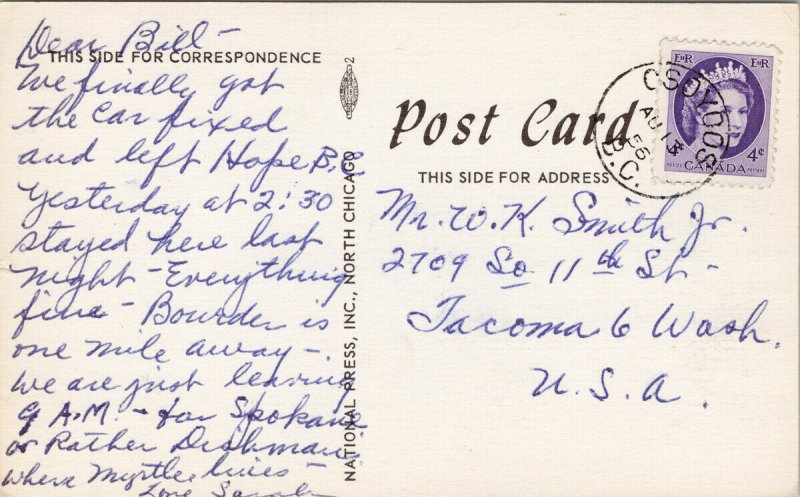 Dear Bill -
THIS SIDE FOR CORRESPONDENCE
We finally got
the car fixed
and left Hope B.C.
Yesterday at 2:30
stayed here last
night - Everything
fine - Bourder is
one mile away -.
We are just leaving
9 A.M. - for Spokane
or Rather Dishman
where Myrtle lives -
Love Sarah
2
NATIONAL PRESS, INC., NORTH CHICAGO
Post Card
THIS SIDE FOR ADDRESS
EIIR EIIR
4¢
POSTES CANADA POSTAGE
OSOYOOS
AU 14
56
B.C.
Mr. W. K. Smith Jr.
2709 So 11th St -
Tacoma 6 Wash.
U.S.A.